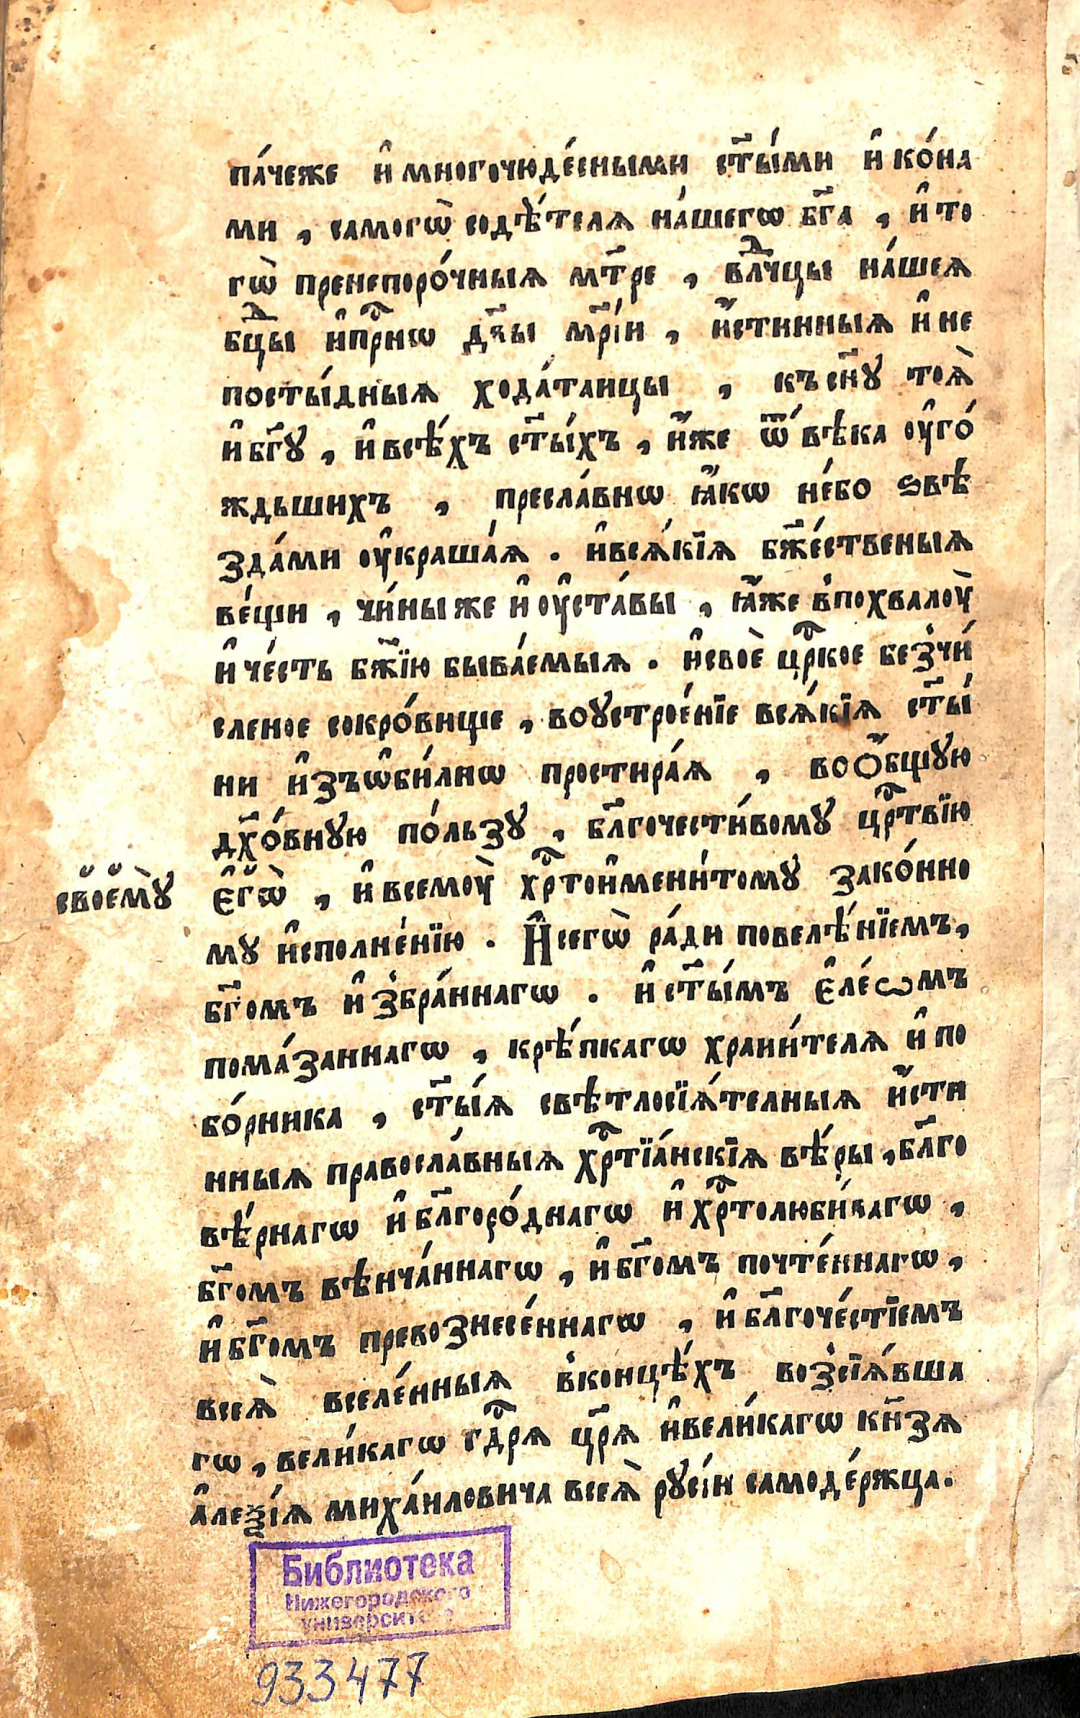 па́чеже и҆многочюде́сными ст҃ы́ми и҆ко́на
ми , самогѡ̀ содѣ́телѧ на́шегѡ бг҃а , и҆то
гѡ̀ пренепоро́чныѧ мт҃ре , влⷣчцы на́шеѧ
бцⷣы и҆прⷭ҇нѡ дв҃ы мр҃і́и , и҆́стинныѧ и҆не
посты́дныѧ хода́таицы , къ сн҃ꙋ тоѧ̀
и҆бг҃ꙋ , и҆всѣ́хъ ст҃ы́хъ , и҆́же ѿвѣ́ка оу҆го́
ждьшихъ , пресла́внѡ ꙗ҆́кѡ не́бо ѕвѣ
зда́ми оу҆краша́ѧ . и҆всѧ́кїѧ бж҃е́ственыѧ
ве́щи , чи́ны же и҆оу҆ста́вы , ꙗ҆́же в̾похвалоу̀
и҆че́сть бж҃їю быва́емыѧ . и҆своѐ црⷭ҇кое без̾чи́
сленое сокро́вище , воꙋстрое́нїе всѧ́кїѧ ст҃ы́
ни и҆зъѡ҆би́лнѡ простира́ѧ , воѻ҆́бщꙋю
дх҃о́внꙋю по́льзꙋ , бл҃гочести́вомꙋ црⷭ҇твїю
своемꙋ̀ є҆гѡ̀ , и҆всемоу̀ хрⷭ҇тои҆мени́томꙋ зако́нно
мꙋ и҆сполне́нїю . И҆сегѡ̀ ра́ди повелѣ́нїемъ ,
бг҃омъ и҆з̾бра́ннагѡ . и҆ст҃ы́мъ є҆ле́ѡмъ
пома́заннагѡ , крѣ́пкагѡ храни́телѧ и҆по
бо́рника , ст҃ы́ѧ свѣтлосїѧ́телныѧ и҆́сти
нныѧ правосла́вныѧ хрⷭ҇тїа́нскїѧ вѣ́ры , бл҃го
вѣ́рнагѡ и҆бл҃горо́днагѡ и҆хрⷭ҇толюби́вагѡ ,
бг҃омъ вѣнча́ннагѡ , и҆бг҃омъ почте́ннагѡ ,
и҆бг҃омъ превознесе́ннагѡ , и҆бл҃гоче́стїемъ
всеѧ̀ вселе́нныѧ в̾концѣ́хъ воз̾сїѧ́вша
гѡ , вели́кагѡ гдⷭ҇рѧ цр҃ѧ и҆вели́кагѡ кн҃зѧ
а҆леѯі́ѧ миха́иловича всеѧ̀ рꙋсі́и самоде́ржца .
Библиотека
Нижегородского
университета
933477